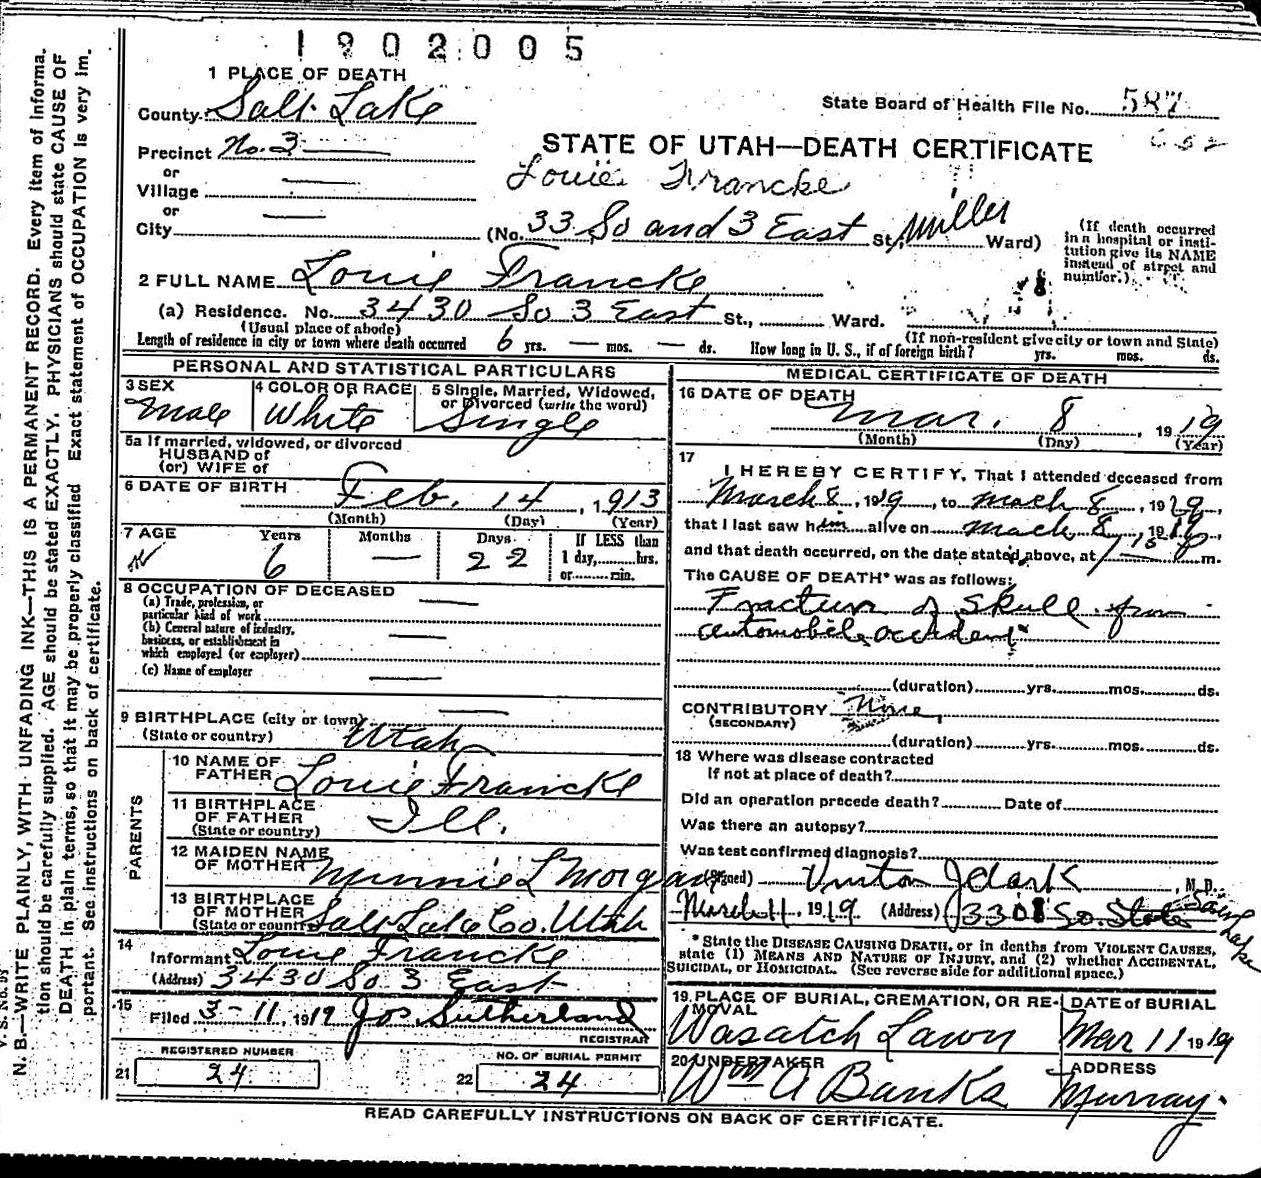 1902005
1 PLACE OF DEATH
County Salt Lake
State Board of Health File No. 587
Precinct No. 3
STATE OF UTAH—DEATH CERTIFICATE
or
Village
Louie Francke
or
City
(No. 33 So and 3 East St, Miller Ward)
(If death occurred in a hospital or insti-
tution give its NAME
instead of street and
number.)
2 FULL NAME Louie Francke
(a) Residence. No. 3430 So 3 East St., Ward.
(Usual place of abode)
(If non-resident give city or town and State)
Length of residence in city or town where death occurred 6 yrs. — mos. — ds. How long in U. S., if of foreign birth? yrs. mos. ds.
PERSONAL AND STATISTICAL PARTICULARS
3 SEX
Male
4 COLOR OR RACE
White
5 Single, Married, Widowed,
or Divorced (write the word)
Single
5a If married, widowed, or divorced
HUSBAND of
(or) WIFE of
6 DATE OF BIRTH
Feb. 14, 1913
(Month) (Day) (Year)
7 AGE Years Months Days If LESS than
6 — 22 1 day, hrs.
or min.
8 OCCUPATION OF DECEASED
(a) Trade, profession, or
particular kind of work —
(b) General nature of industry,
business, or establishment in
which employed (or employer) —
(c) Name of employer —
9 BIRTHPLACE (city or town) —
(State or country) Utah
PARENTS
10 NAME OF
FATHER Louie Francke
11 BIRTHPLACE
OF FATHER Ill.
(State or country)
12 MAIDEN NAME
OF MOTHER Minnie L Morgan
13 BIRTHPLACE
OF MOTHER Salt Lake Co. Utah
(State or country)
14
Informant Louie Francke
(Address) 3430 So. 3 East
15
Filed 3-11, 1919 Jos Sutherland
REGISTRAR
REGISTERED NUMBER
21 24
NO. OF BURIAL PERMIT
22 24
MEDICAL CERTIFICATE OF DEATH
16 DATE OF DEATH
Mar. 8, 1919
(Month) (Day) (Year)
17
I HEREBY CERTIFY, That I attended deceased from
March 8, 1919, to Mach 8, 1919,
that I last saw him alive on Mach 8, 1919,
and that death occurred, on the date stated above, at m.
The CAUSE OF DEATH* was as follows:
Fracture of Skull from
automobile accident
(duration) yrs. mos. ds.
CONTRIBUTORY None
(SECONDARY)
(duration) yrs. mos. ds.
18 Where was disease contracted
If not at place of death?
Did an operation precede death? Date of
Was there an autopsy?
Was test confirmed diagnosis?
(Signed) Vinton J Clark, M. D.
March 11, 1919 (Address) 3301 So. State Salt Lake
*State the DISEASE CAUSING DEATH, or in deaths from VIOLENT CAUSES,
state (1) MEANS AND NATURE OF INJURY, and (2) whether ACCIDENTAL,
SUICIDAL, or HOMICIDAL. (See reverse side for additional space.)
19 PLACE OF BURIAL, CREMATION, OR RE-
MOVAL
Wasatch Lawn
DATE of BURIAL
Mar 11 1919
20 UNDERTAKER
Wm A Banks
ADDRESS
Murray.
READ CAREFULLY INSTRUCTIONS ON BACK OF CERTIFICATE.
N. B.—WRITE PLAINLY, WITH UNFADING INK—THIS IS A PERMANENT RECORD. Every item of informa-
tion should be carefully supplied. AGE should be stated EXACTLY. PHYSICIANS should state CAUSE OF
DEATH in plain terms, so that it may be properly classified Exact statement of OCCUPATION is very im-
portant. See instructions on back of certificate.